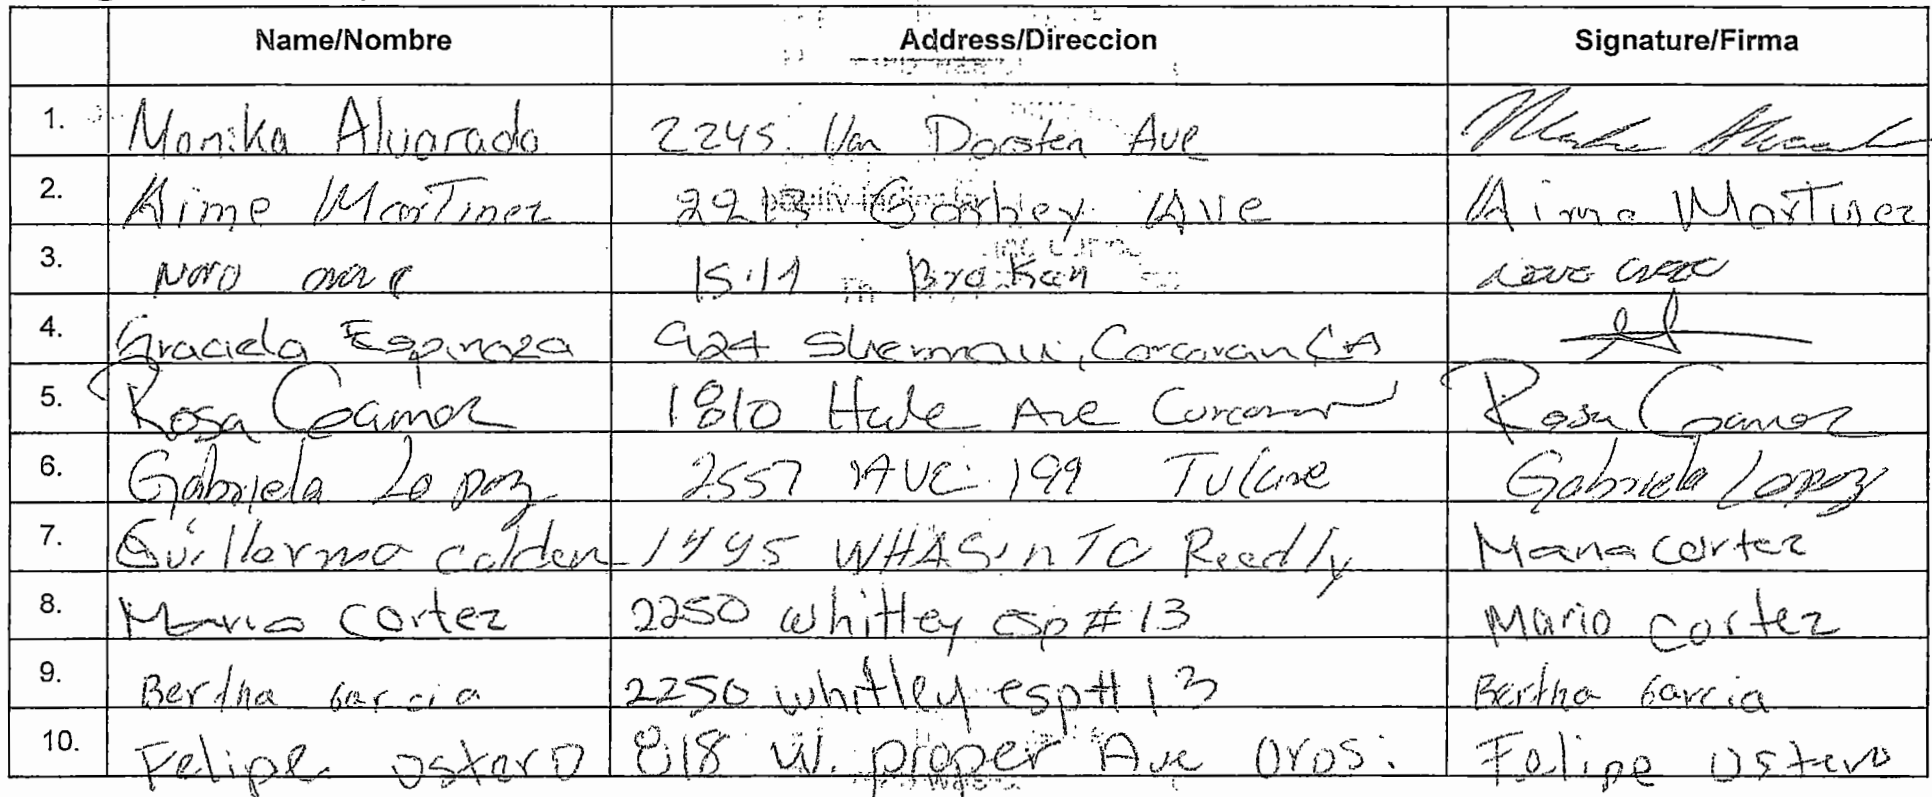 Name/Nombre Address/Direccion Signature/Firma
1. Monika Alvarado 2245 Van Dorsten Ave
2. Aime Martinez 2213 Ave Aime Martinez
3. 
4. Graciela Espinoza 924 Sherman, Corcoran CA
5. Rosa Gamez 1810 Hale Ave Corcoran Rosa Gamez
6. Gabriela Lopez 2557 AVE 199 Tulare Gabriela Lopez
7. Guillermo calderon 1445 WHASinTO Reedly Maria cortez
8. Mario Cortez 2250 whitley esp # 13 Mario cortez
9. Bertha Garcia 2250 whitley esp # 13 Bertha Garcia
10. Felipe 818 W. proper Ave Orosi Felipe